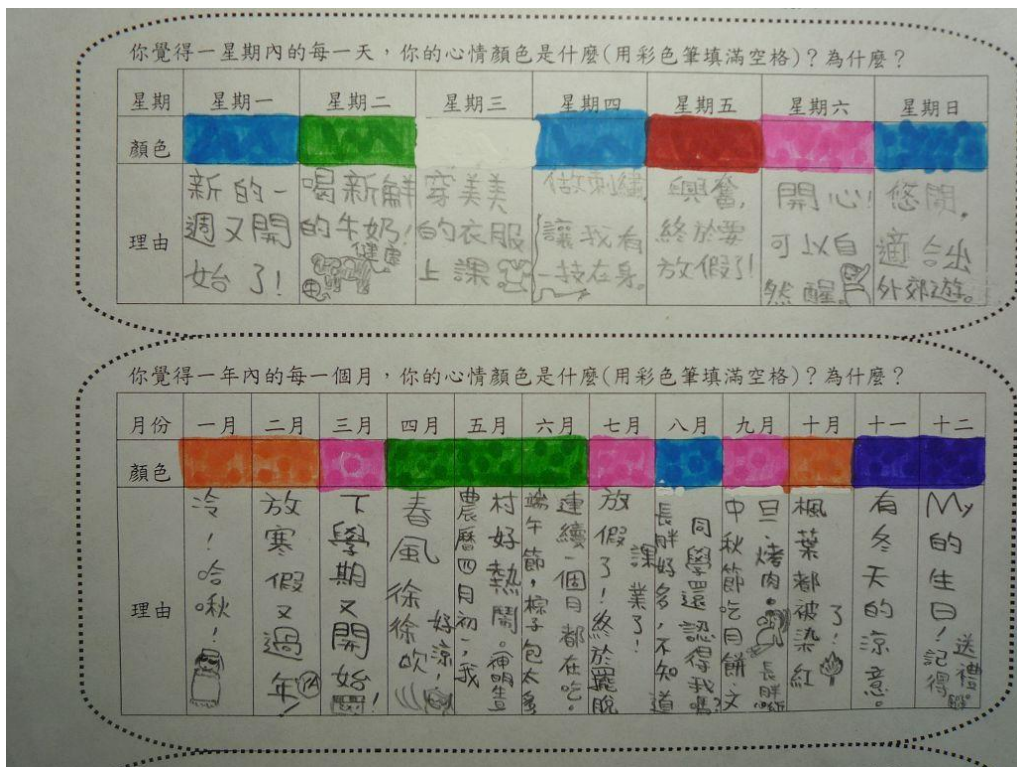 你覺得一星期內的每一天，你的心情顏色是什麼(用彩色筆填滿空格)？為什麼？
星期 星期一 星期二 星期三 星期四 星期五 星期六 星期日
顏色
理由
新的一
週又開
始了！
喝新鮮
的牛奶！
健康
牛
穿美美
的衣服
上課
做刺繡，
讓我有
一技在身。
興奮，
終於要
放假了！
開心！
可以自
然醒。
悠閒，
適合出
外郊遊。
你覺得一年內的每一個月，你的心情顏色是什麼(用彩色筆填滿空格)？為什麼？
月份 一月 二月 三月 四月 五月 六月 七月 八月 九月 十月 十一 十二
顏色
理由
冷！哈啾！
放寒假又過年！
下學期又開始
春風徐徐吹
好涼！
農曆四月初一，我
村好熱鬧。神明生
端午節，粽子包太多
連續一個月都在吃。
放假了！終於擺脫
課業了！
長胖好多，不知道
同學還認得我嗎？
中秋節吃月餅、文
旦、烤肉。
長胖
楓葉都被染紅
了！
有冬天的涼意。
My的生日！記得
送禮